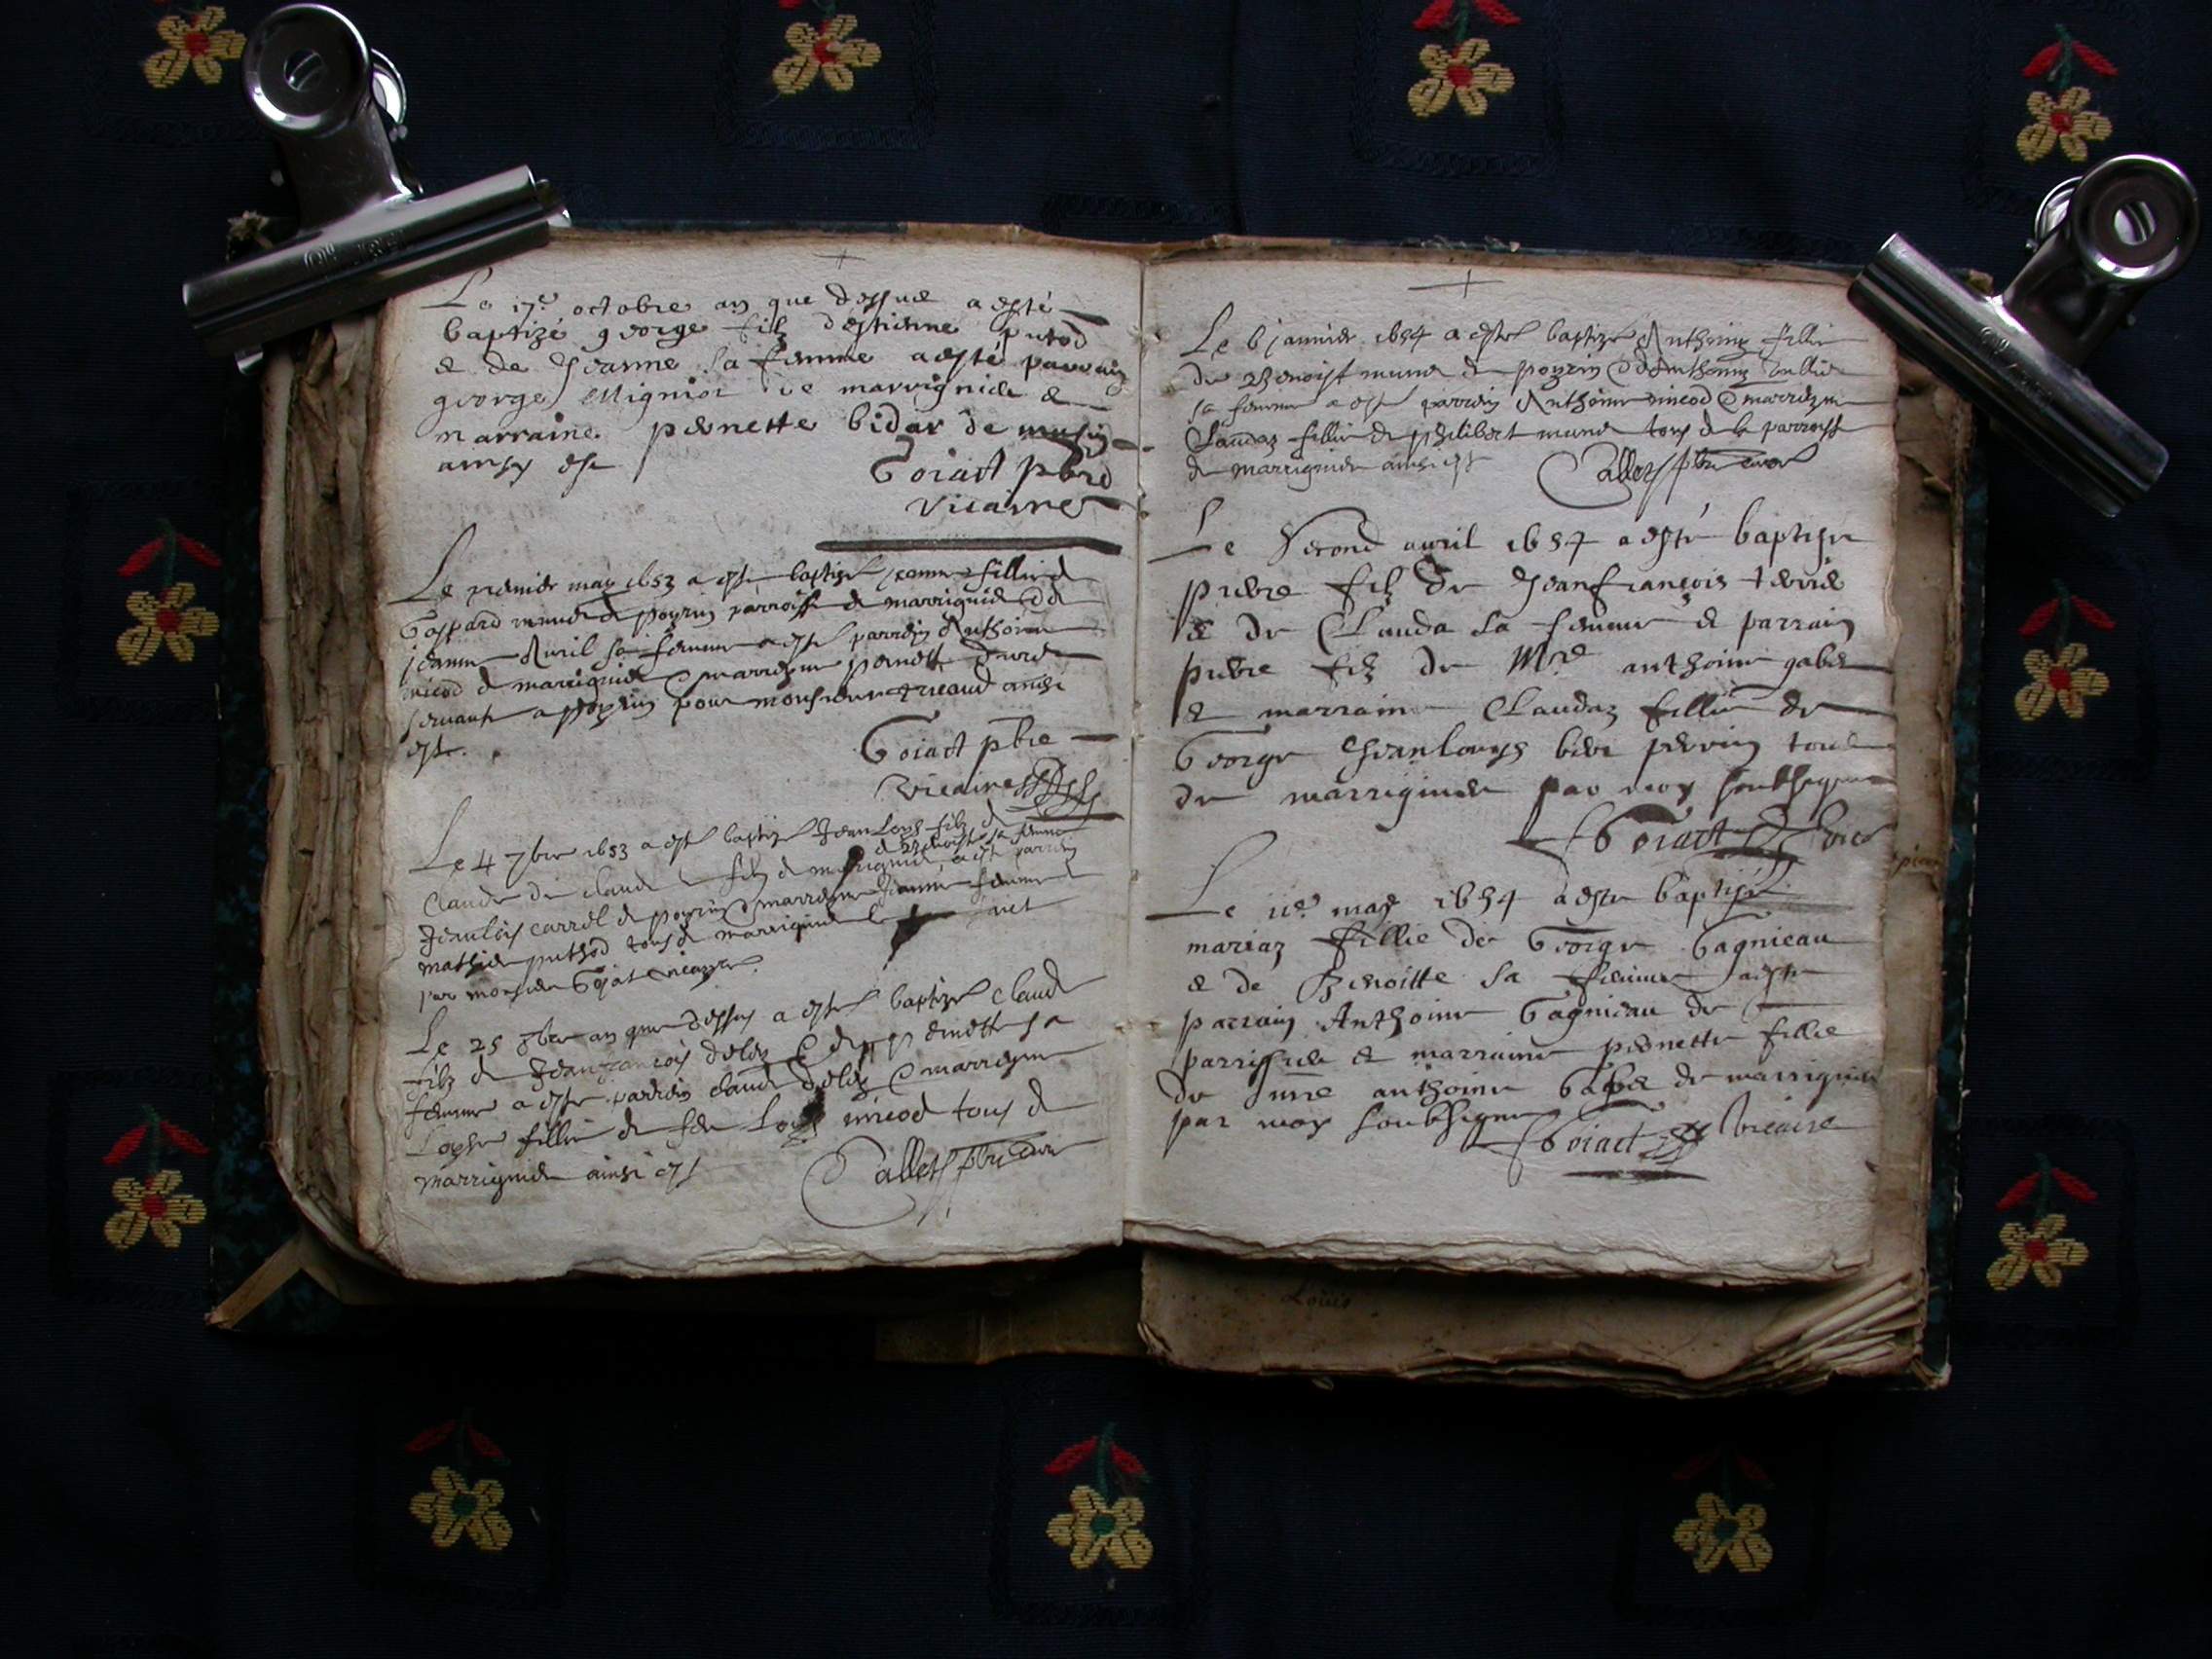 Le 17e octobre an que dessus a esté
baptizé george filz destienne putod
& de Jeanne sa femme a esté parrain
george Mignioz de marrignier &
marraine pernette bidar de
ainsy est
Goiact pbre
vicaire
Le premier may 1653 a esté baptizé Jeanne fillie de
Gaspard munier de poyrin parroisse de marrignier & de
Jeanne Avril sa femme a esté parrein Anthoine
nicod de marrignier & marreyne pernette
servante a poyrin pour monsieur ainsi
est.
Goiact pbre
vicaire
Le 4 7bre 1653 a esté baptizé Jean Loys filz de
& de Benoiste sa femme
Claude de claude filz de marrignier a esté parrein
Jeanloys carrel de poyrin & marreyne Jeanne femme de
mathieu puthod tous de marrignier le
par monsieur Gojat vicayre.
Le 25 8bre an que dessus a esté baptizé claude
filz de Jeanfrancois deley & de pernette sa
femme a esté parrein claude deley & marreyne
Loyse fillie de feu Loys nicod tous de
marrignier ainsi est
Callets pbre curé
Le 6 janvier 1654 a esté baptizé Anthoina fillie
de Benoist munier de poyrin & d'Anthoina
sa femme a esté parrein Anthoine nicod & marreyne
Claudaz fillie de philibert munier tous de la parroisse
de marrignier ainsi est
Callets pbre curé
Le Second avril 1654 a esté baptisé
pierre filz de Jeanfrançois
& de Clauda sa femme & parrain
pierre filz de Mre anthoine gabet
& marraine Claudaz fillie de
George Jeanlouys perrin tous
de marrignier par moy soubsigné
Goiact
Le 11e may 1654 a esté baptisé
mariaz fillie de George Gagnieau
& de Benoitte sa femme a esté
parrain Anthoine Gagnieau de
& marraine pernette fillie
de mre anthoine Gabet de marrignier
par moy soubsigné
Goiact vicaire
Louis